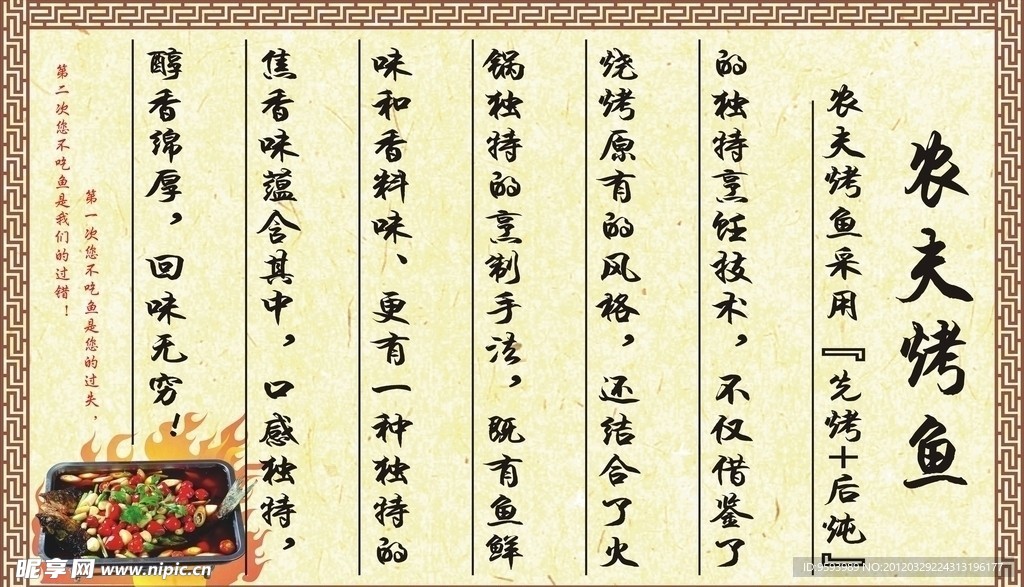 农夫烤鱼
农夫烤鱼采用『先烤+后炖』
的独特烹饪技术，不仅借鉴了
烧烤原有的风格，还结合了火
锅独特的烹制手法，既有鱼鲜
味和香料味、更有一种独特的
焦香味蕴含其中，口感独特，
醇香绵厚，回味无穷！
第一次您不吃鱼是您的过失，
第二次您不吃鱼是我们的过错！
昵享网 www.nipic.cn
ID:9593989 NO:20120329224313196177